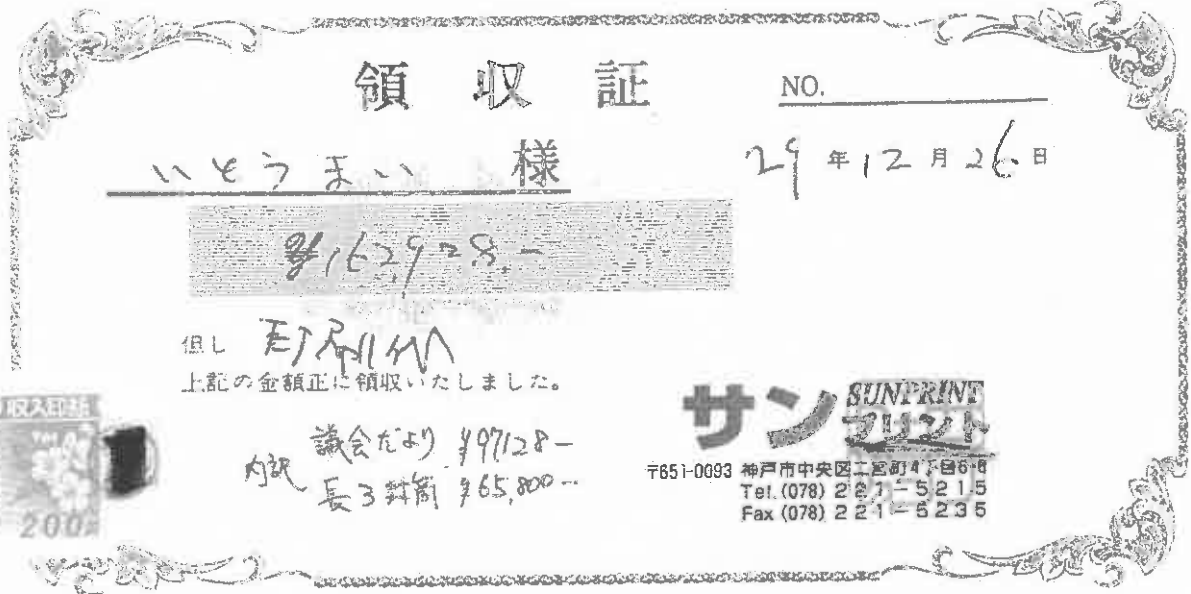 領収証
NO.
いとうまい 様
29年12月26日
¥162,928-
但し 印刷代
上記の金額正に領収いたしました。
内訳
議会だより ¥97128-
長3封筒 ¥65,800-
収入印紙
200
サンプリント
SUNPRINT
〒651-0093 神戸市中央区二宮町4丁目6-6
Tel.(078)221-5215
Fax(078)221-5235